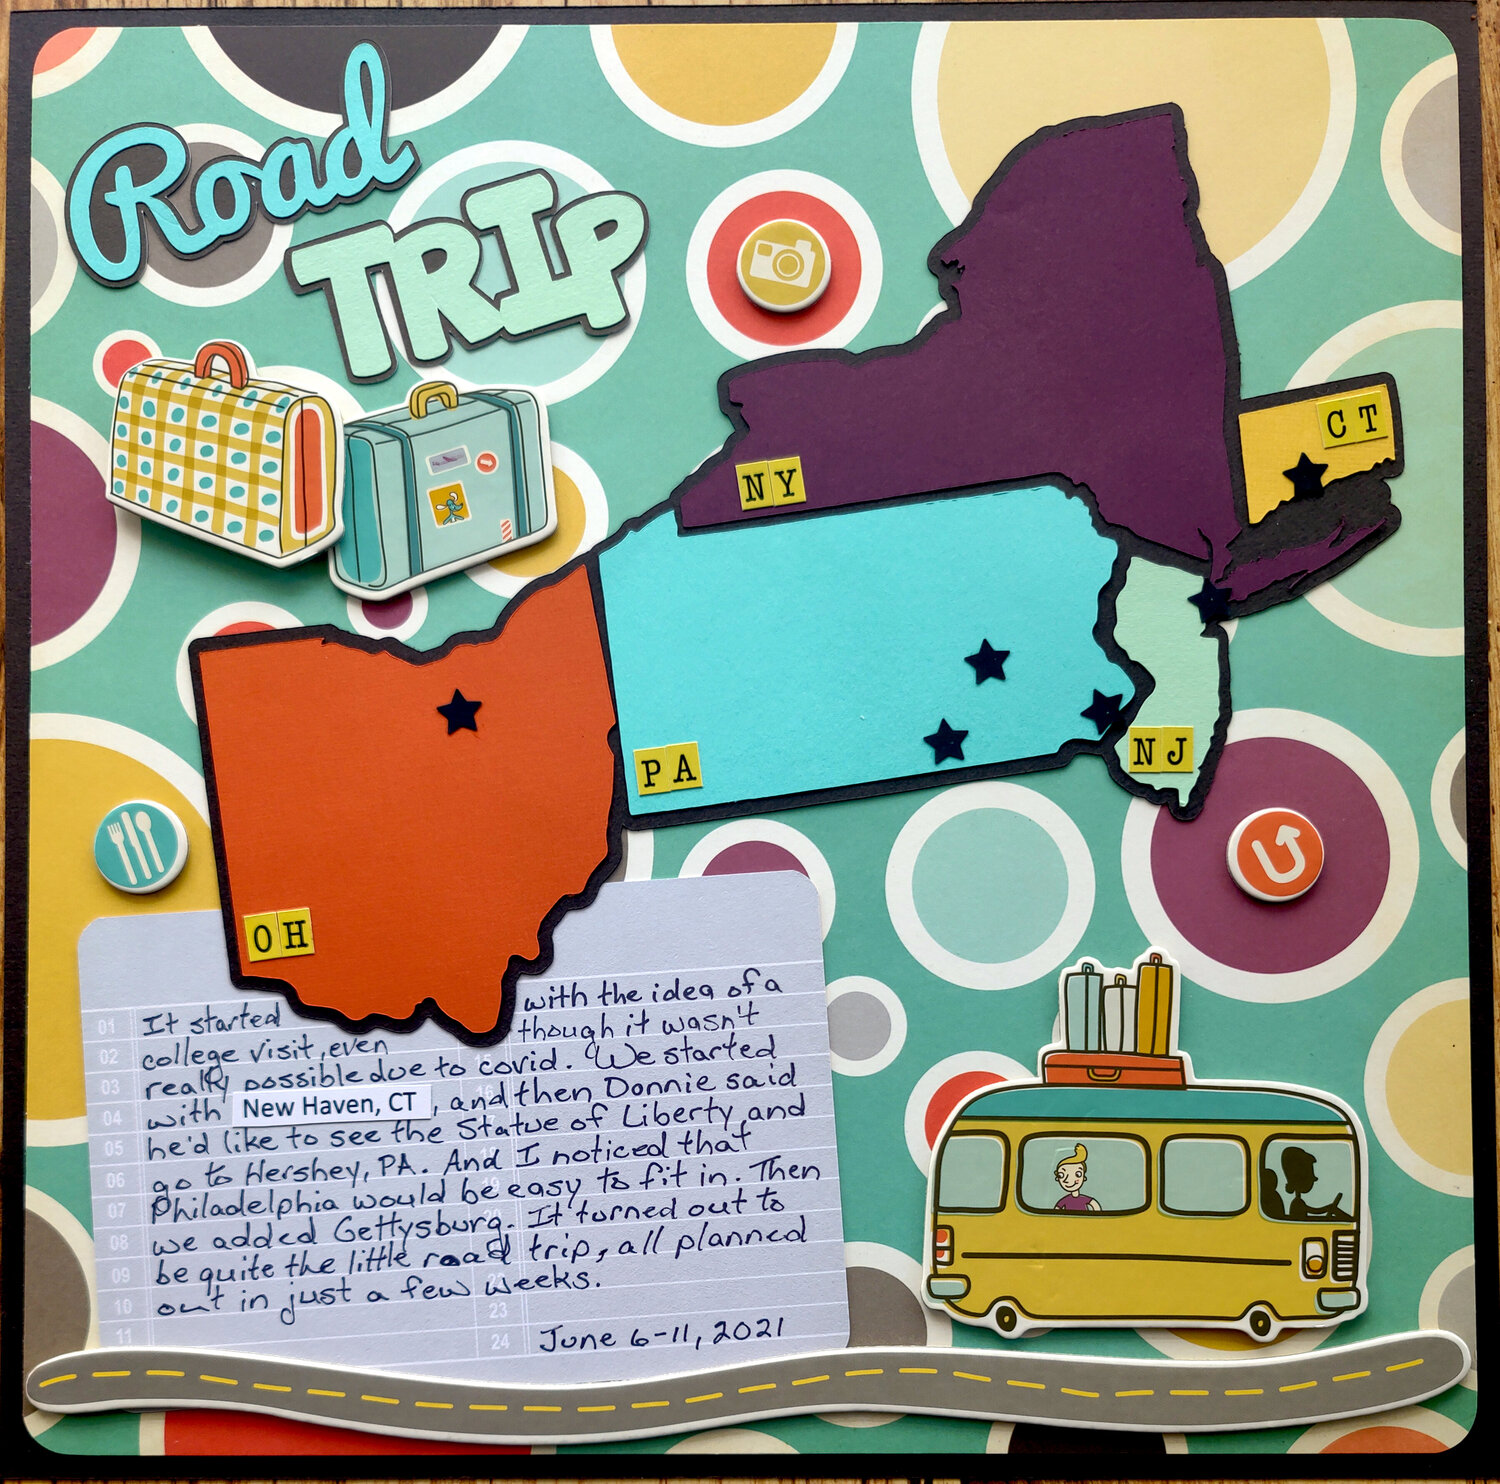 Road
TRIP
NY
CT
PA
NJ
OH
01 It started with the idea of a
02 college visit, even though it wasn't
03 really possible due to covid. We started
04 with New Haven, CT, and then Donnie said
05 he'd like to see the Statue of Liberty and
06 go to Hershey, PA. And I noticed that
07 Philadelphia would be easy to fit in. Then
08 we added Gettysburg. It turned out to
09 be quite the little road trip, all planned
10 out in just a few weeks.
11 23
24 June 6-11, 2021